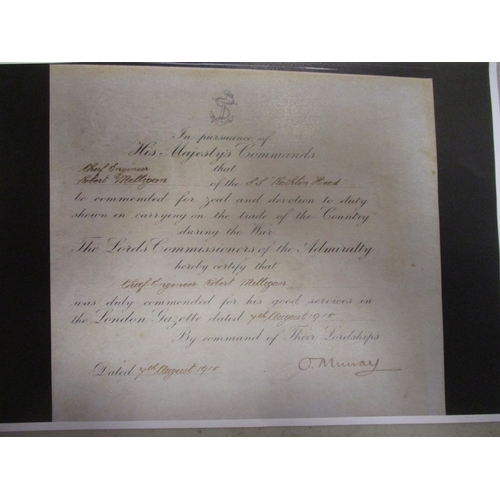 In pursuance of
His Majesty's Commands
Chief Engineer that
Robert Milligan of the S.S. Rathlin Head
be commended for zeal and devotion to duty
shown in carrying on the trade of the Country
during the War
The Lords Commissioners of the Admiralty
hereby certify that
Chief Engineer Robert Milligan
was duly commended for his good services in
the London Gazette dated 7th August 1918
By command of Their Lordships
Dated 7th August 1918
O. Murray